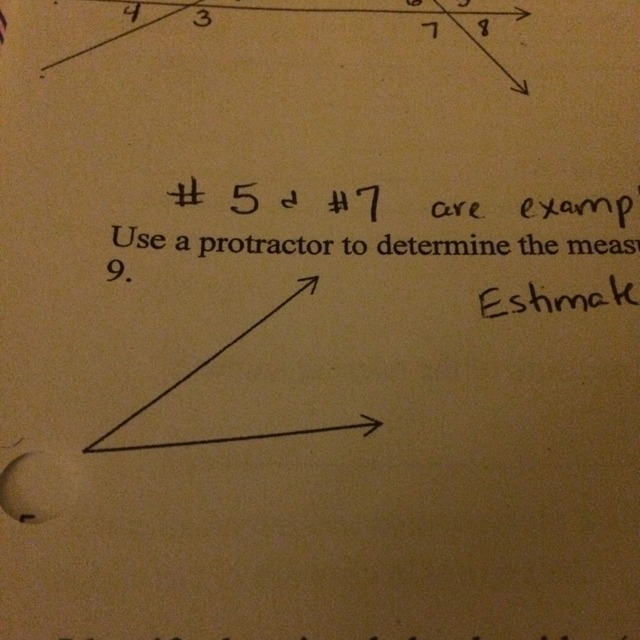 4 3 7 8
# 5 & #7 are
Use a protractor to determine the
9.